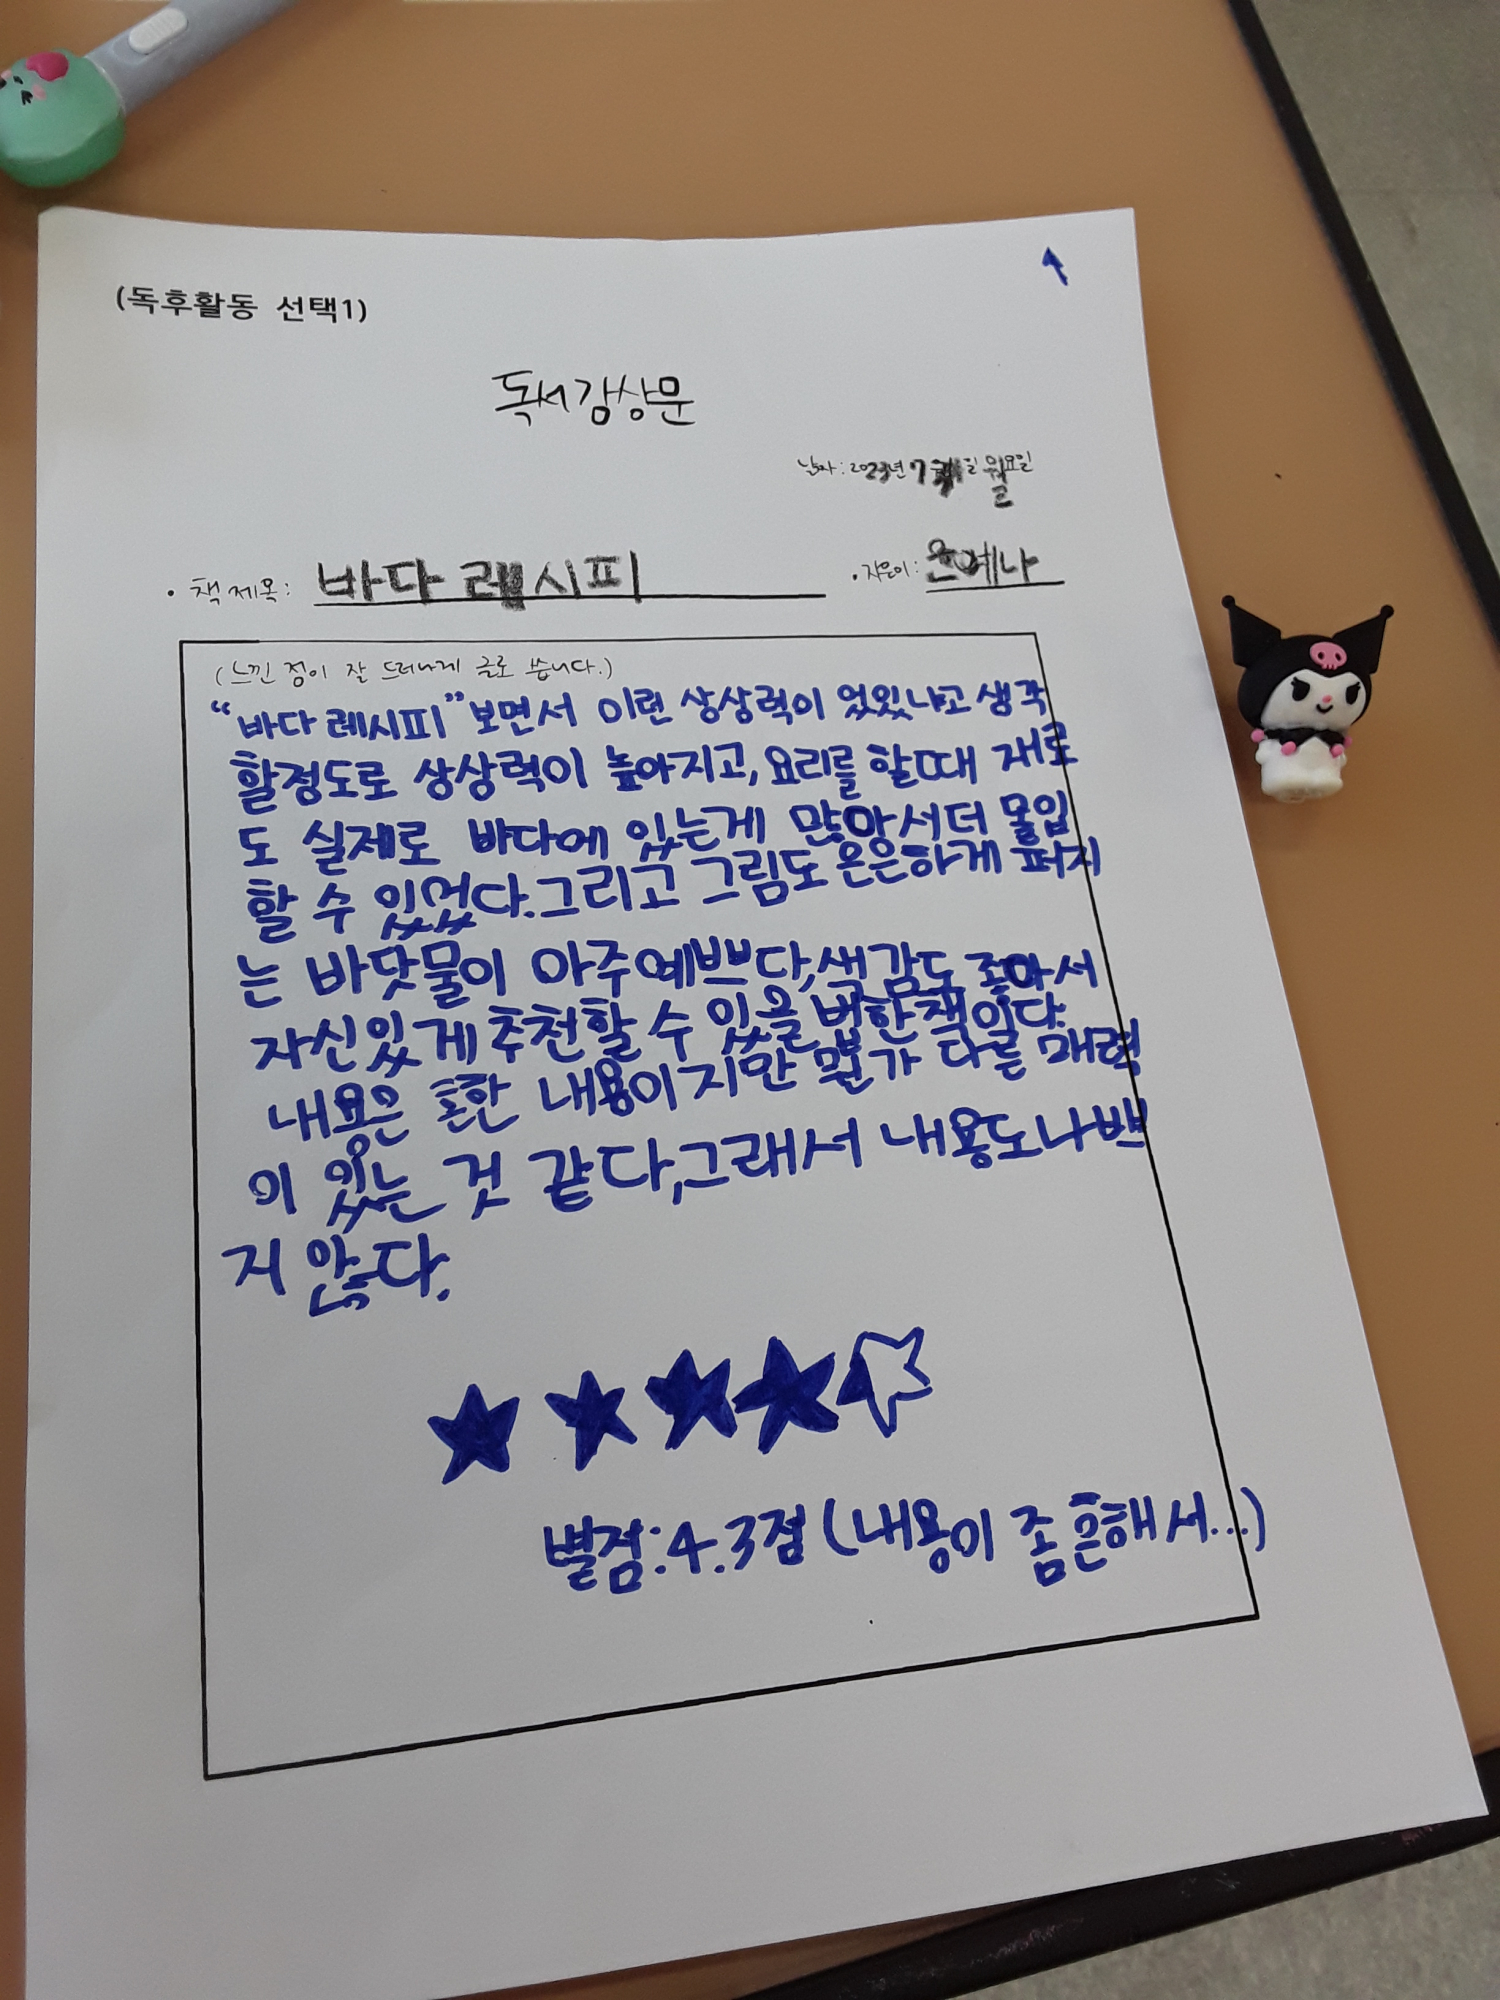 (독후활동 선택1)
독서감상문
날짜: 2023년 7월 일 월요일
• 책 제목: 바다 레시피
• 지은이: 윤예나
(느낀 점이 잘 드러나게 글로 씁니다.)
"바다 레시피" 보면서 이런 상상력이 있었나고 생각
할정도로 상상력이 높아지고, 요리를 할때 재료
도 실제로 바다에 있는게 많아서 더 몰입
할 수 있었다. 그리고 그림도 은은하게 퍼지
는 바닷물이 아주 예쁘다, 색감도 좋아서
자신있게 추천할 수 있을 법한 책이다.
내용은 흔한 내용이지만 뭔가 다른 매력
이 있는 것 같다, 그래서 내용도 나쁘
지 않다.
별점: 4.3점 (내용이 좀 흔해서...)